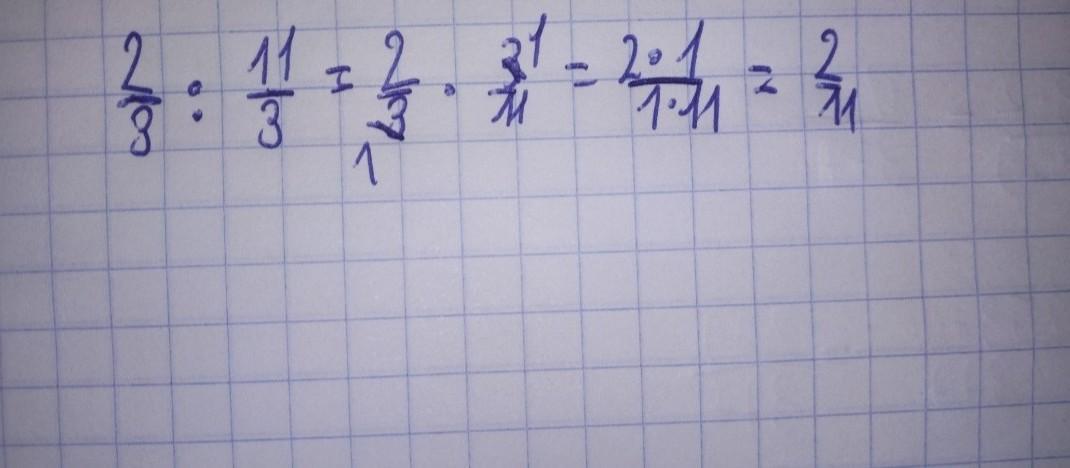 2/3 : 11/3 = 2/3 1 · 3/11 1 = 2·1/1·11 = 2/11